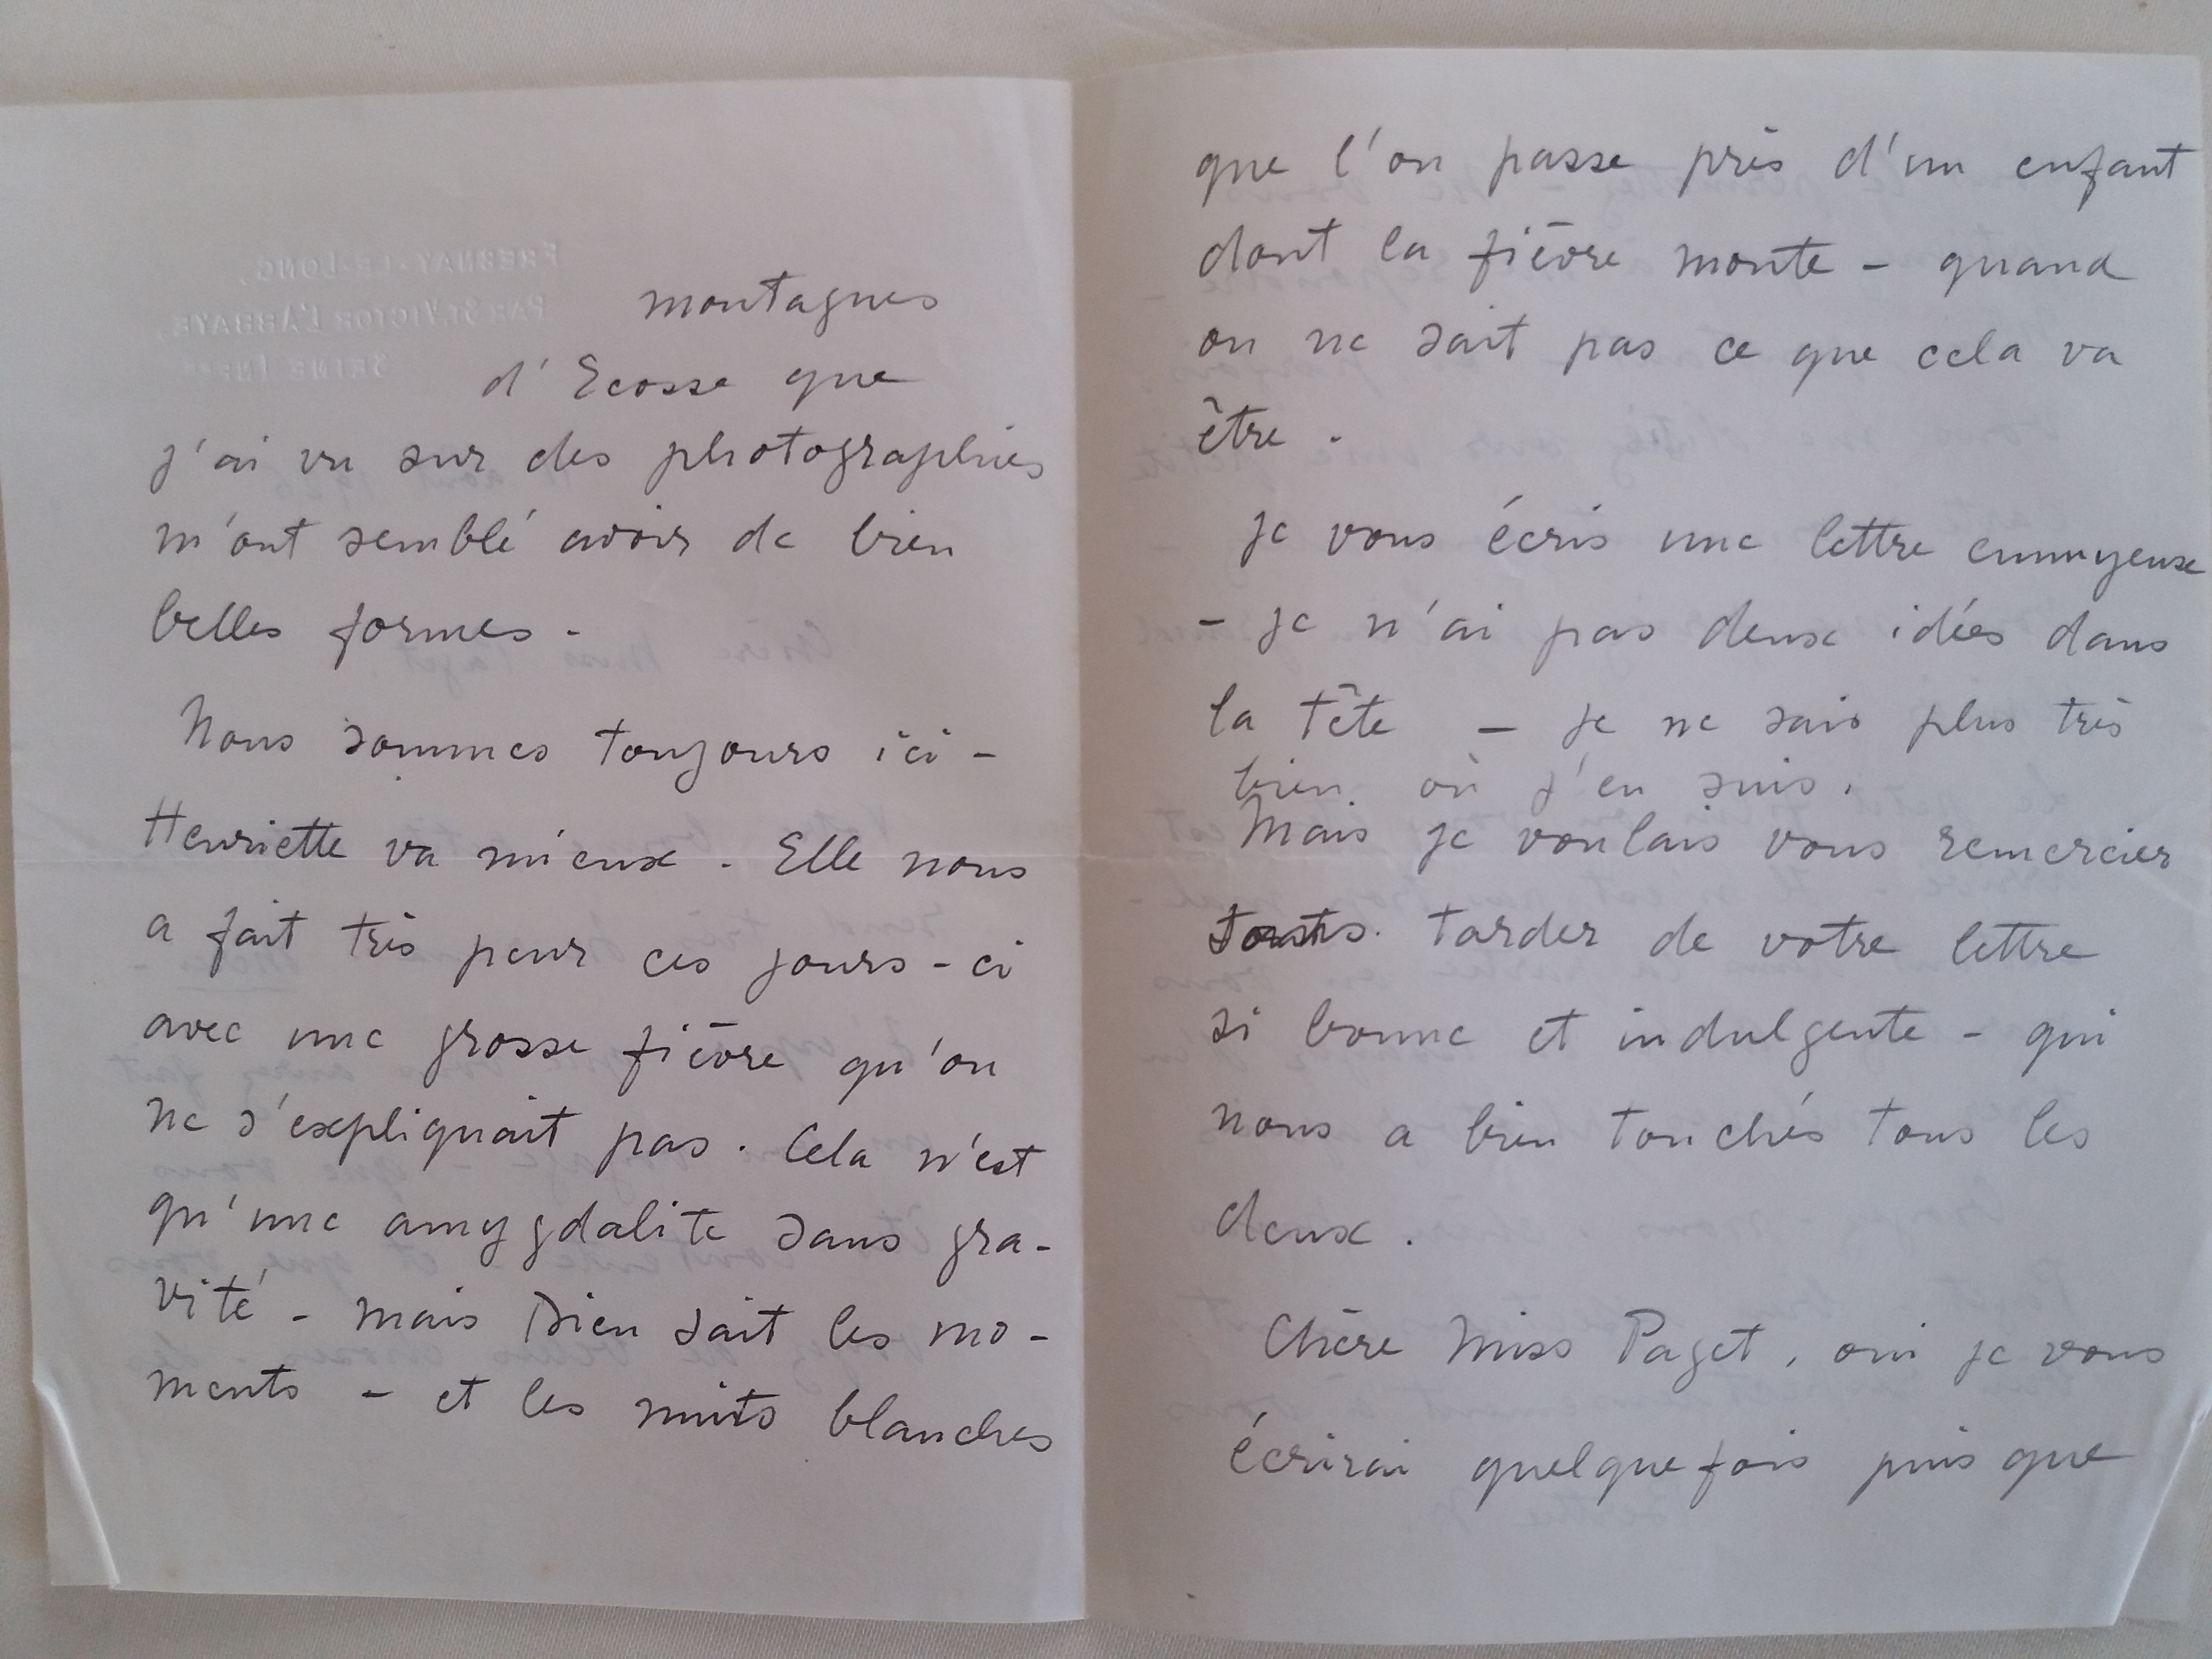 montagnes
d'Ecosse que
j'ai vu sur des photographies
m'ont semblé avoir de bien
belles formes -
Nous sommes toujours ici -
Henriette va mieux. Elle nous
a fait très peur ces jours-ci
avec une grosse fièvre qu'on
ne s'expliquait pas. Cela n'est
qu'une amygdalite sans gra-
vité - mais Dieu sait les mo-
ments - et les nuits blanches
que l'on passe près d'un enfant
dont la fièvre monte - quand
on ne sait pas ce que cela va
être.
Je vous écris une lettre ennuyeuse
- je n'ai pas deux idées dans
la tête - je ne sais plus très
bien où j'en suis.
Mais je voulais vous remercier
tarder de votre lettre
si bonne et indulgente - qui
nous a bien touchés tous les
deux.
Chère Miss Paget, oui je vous
écrirai quelquefois puis que
FRESNAY-LE-LONG,
PAR ST VICTOR L'ABBAYE,
SEINE INFRE